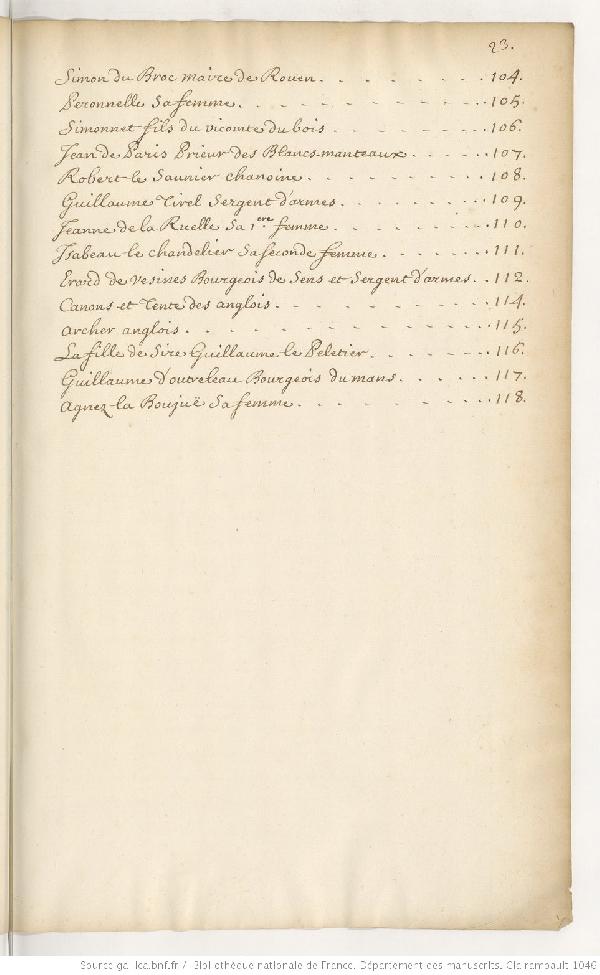 23.
Simon du Broc maire de Rouen. . . . . . . . 104.
Peronnelle Sa femme. . . . . . . . . . . 105.
Simonnet fils du vicomte du bois . . . . . . . 106.
Jean de Paris Prieur des Blancs-manteaux . . . . . 107.
Robert le Saunier chanoine. . . . . . . . . 108.
Guillaume Tirel Sergent d'armes. . . . . . . . 109.
Jeanne de la Ruelle Sa 1ere femme . . . . . . . 110.
Isabeau le chandelier Sa seconde femme . . . . . . 111.
Erard de Vesines Bourgeois de Sens et Sergent d'armes. . . 112.
Canons et Tente des anglois. . . . . . . . . . 114.
archer anglois. . . . . . . . . . . . . 115.
La fille de Sire Guillaume le Peletier. . . . . . . 116.
Guillaume D'outreleau Bourgeois du mans. . . . . . 117.
Agnez la Boujuë Sa femme. . . . . . . . . 118.
Source gallica.bnf.fr / Bibliothèque nationale de France. Département des manuscrits. Clairambault 1046